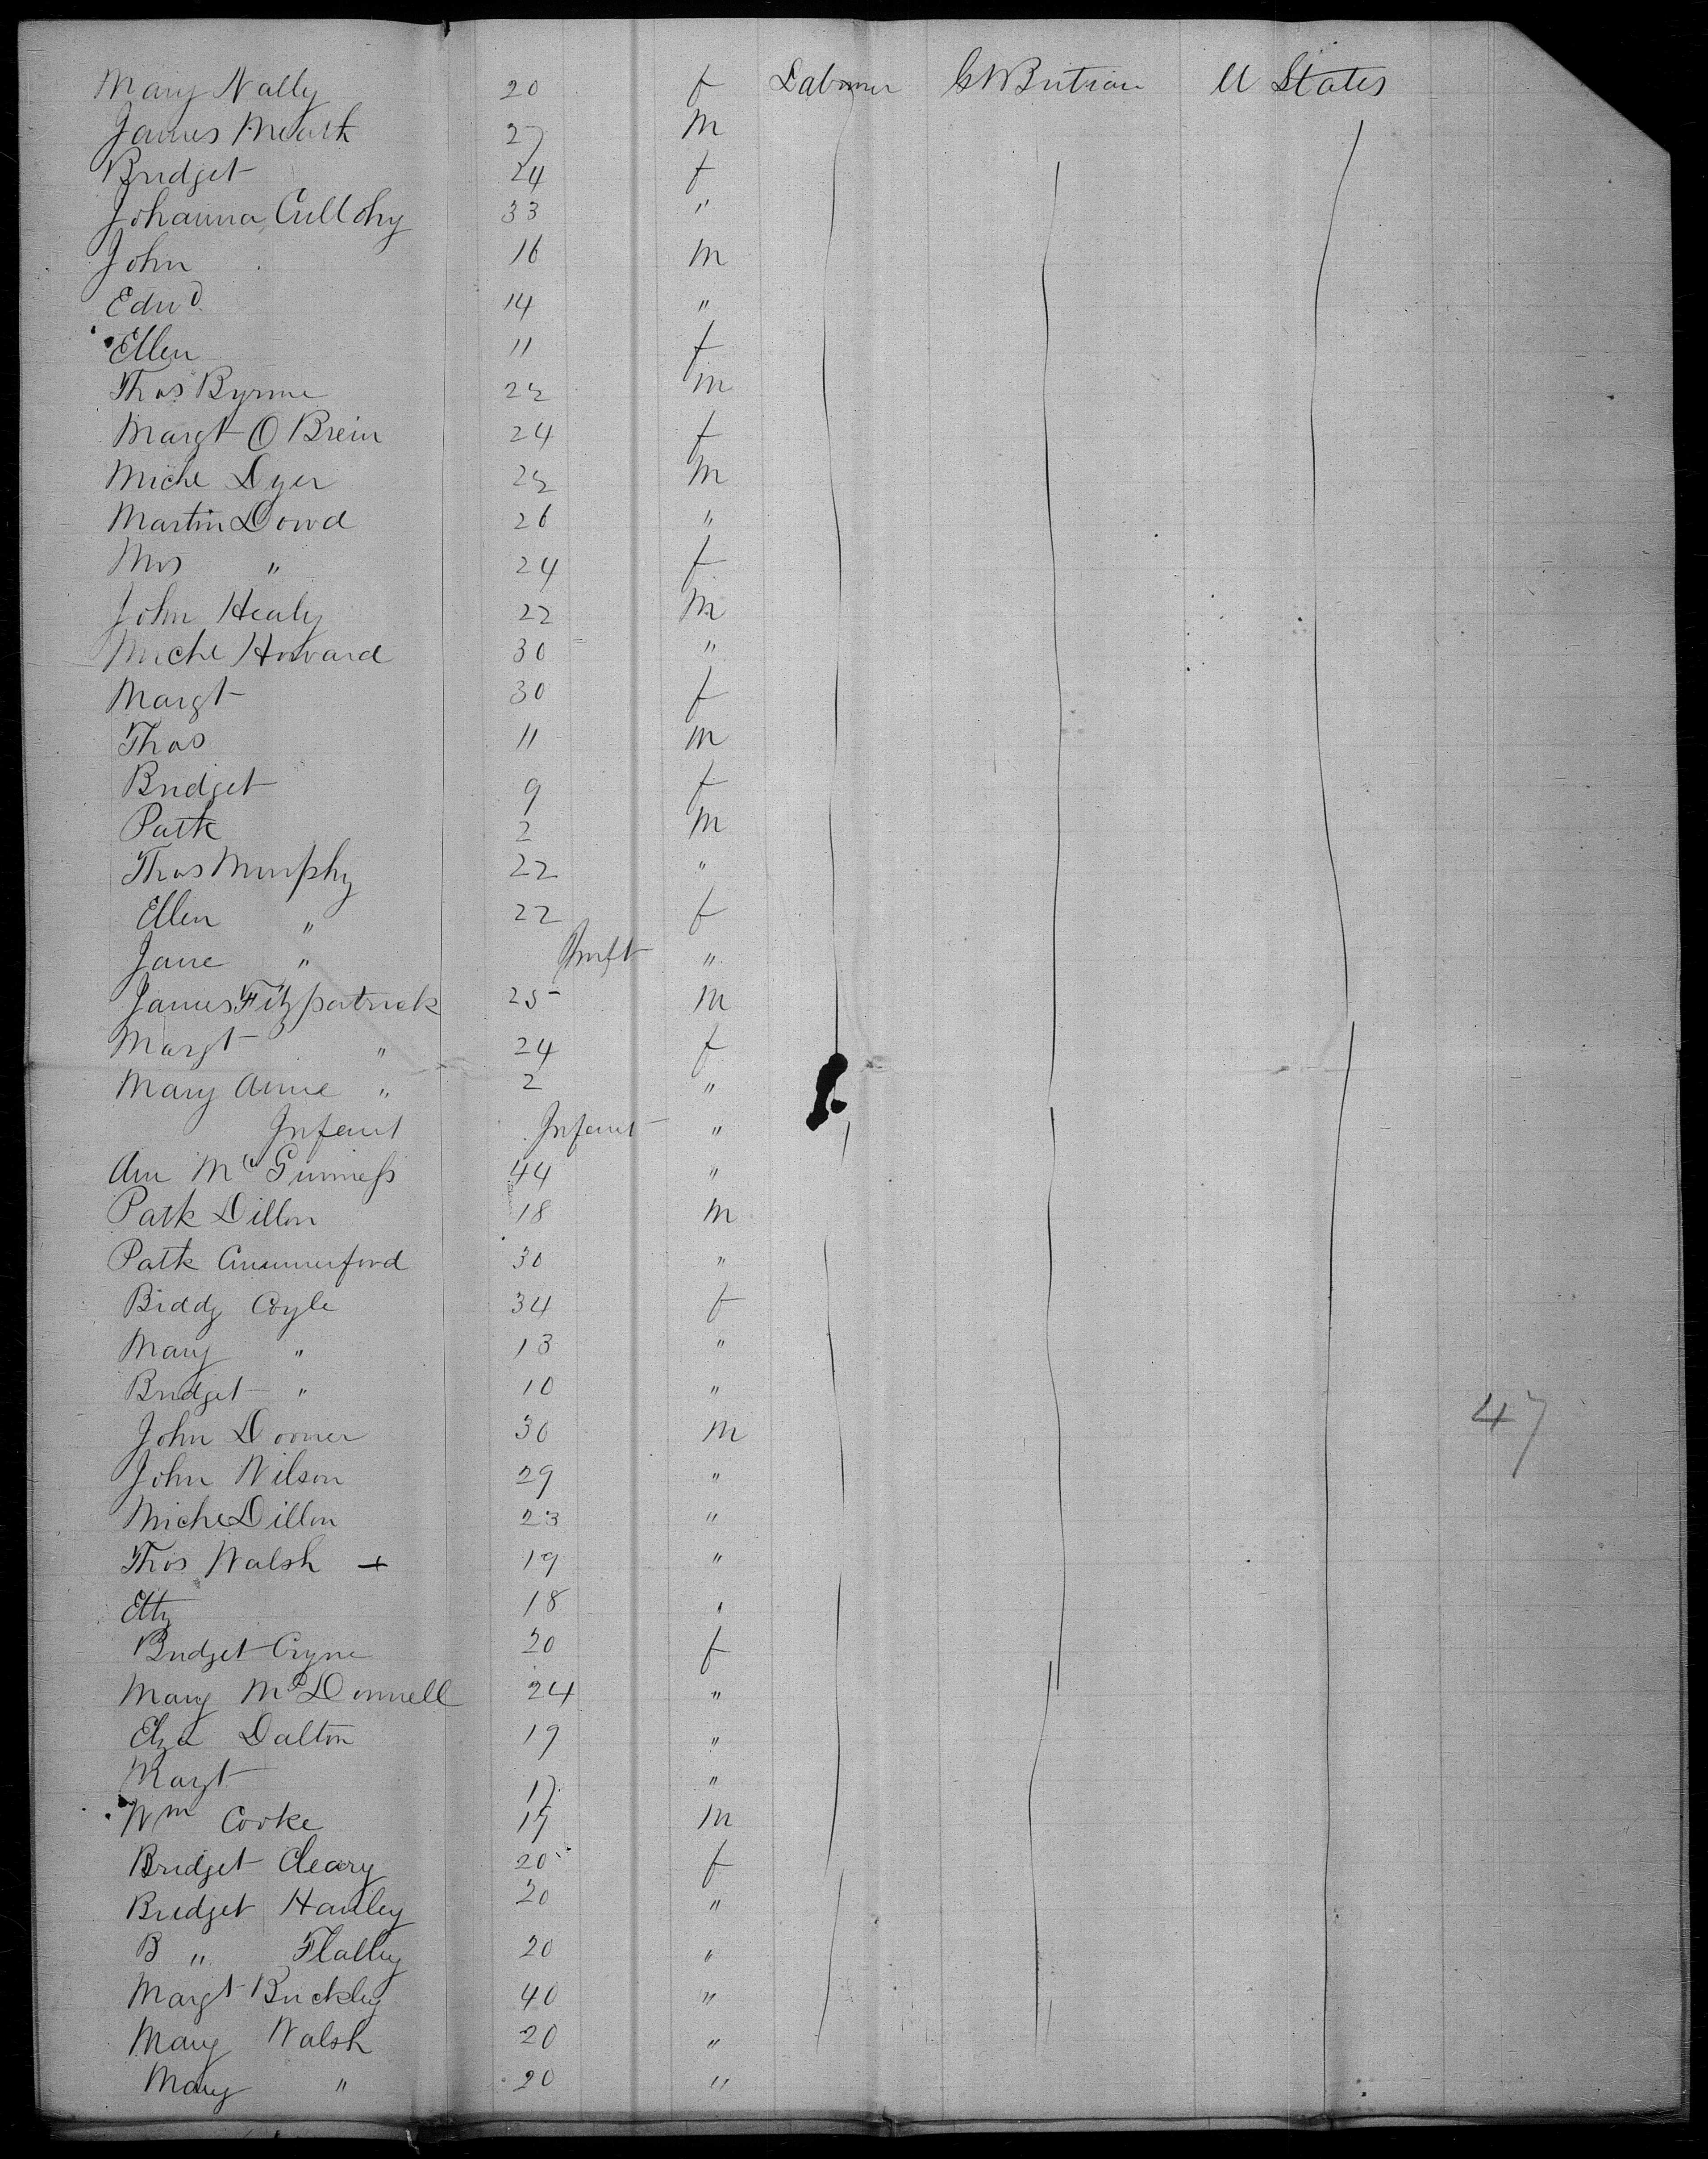 Mary Nally 20 f Labourer Gt Britain U States
James Meath 27 m
Bridget 24 f
Johanna Cullohy 33 "
John 16 m
Edwd 14 "
Ellen 11 f
Thos Byrne 22 m
Margt O Brein 24 f
Miche Dyer 22 m
Martin Dowd 26 "
Mrs " 24 f
John Healy 22 m
Miche Howard 30 "
Margt 30 f
Thos 11 m
Bridget 9 f
Patk 2 m
Thos Murphy 22 "
Ellen " 22 f
Jane " Inft "
James Fitzpatrick 25 m
Margt " 24 f
Mary Anne " 2 "
Infant Infant "
Ann McGinness 44 "
Patk Dillon 18 m
Patk Cummerford 30 "
Biddy Coyle 34 f
Mary " 13 "
Bridget " 10 "
John Dooner 30 m
47
John Wilson 29 "
Miche Dillon 23 "
Thos Walsh + 19 "
18 "
Bridget Cryne 20 f
Mary McDonnell 24 "
Eliza Dalton 19 "
Margt 17 "
Wm Cooke 19 m
Bridget Cleary 20 f
Bridget Hanley 20 "
B " Flalley 20 "
Margt Buckley 40 "
Mary Walsh 20 "
Mary " 20 "